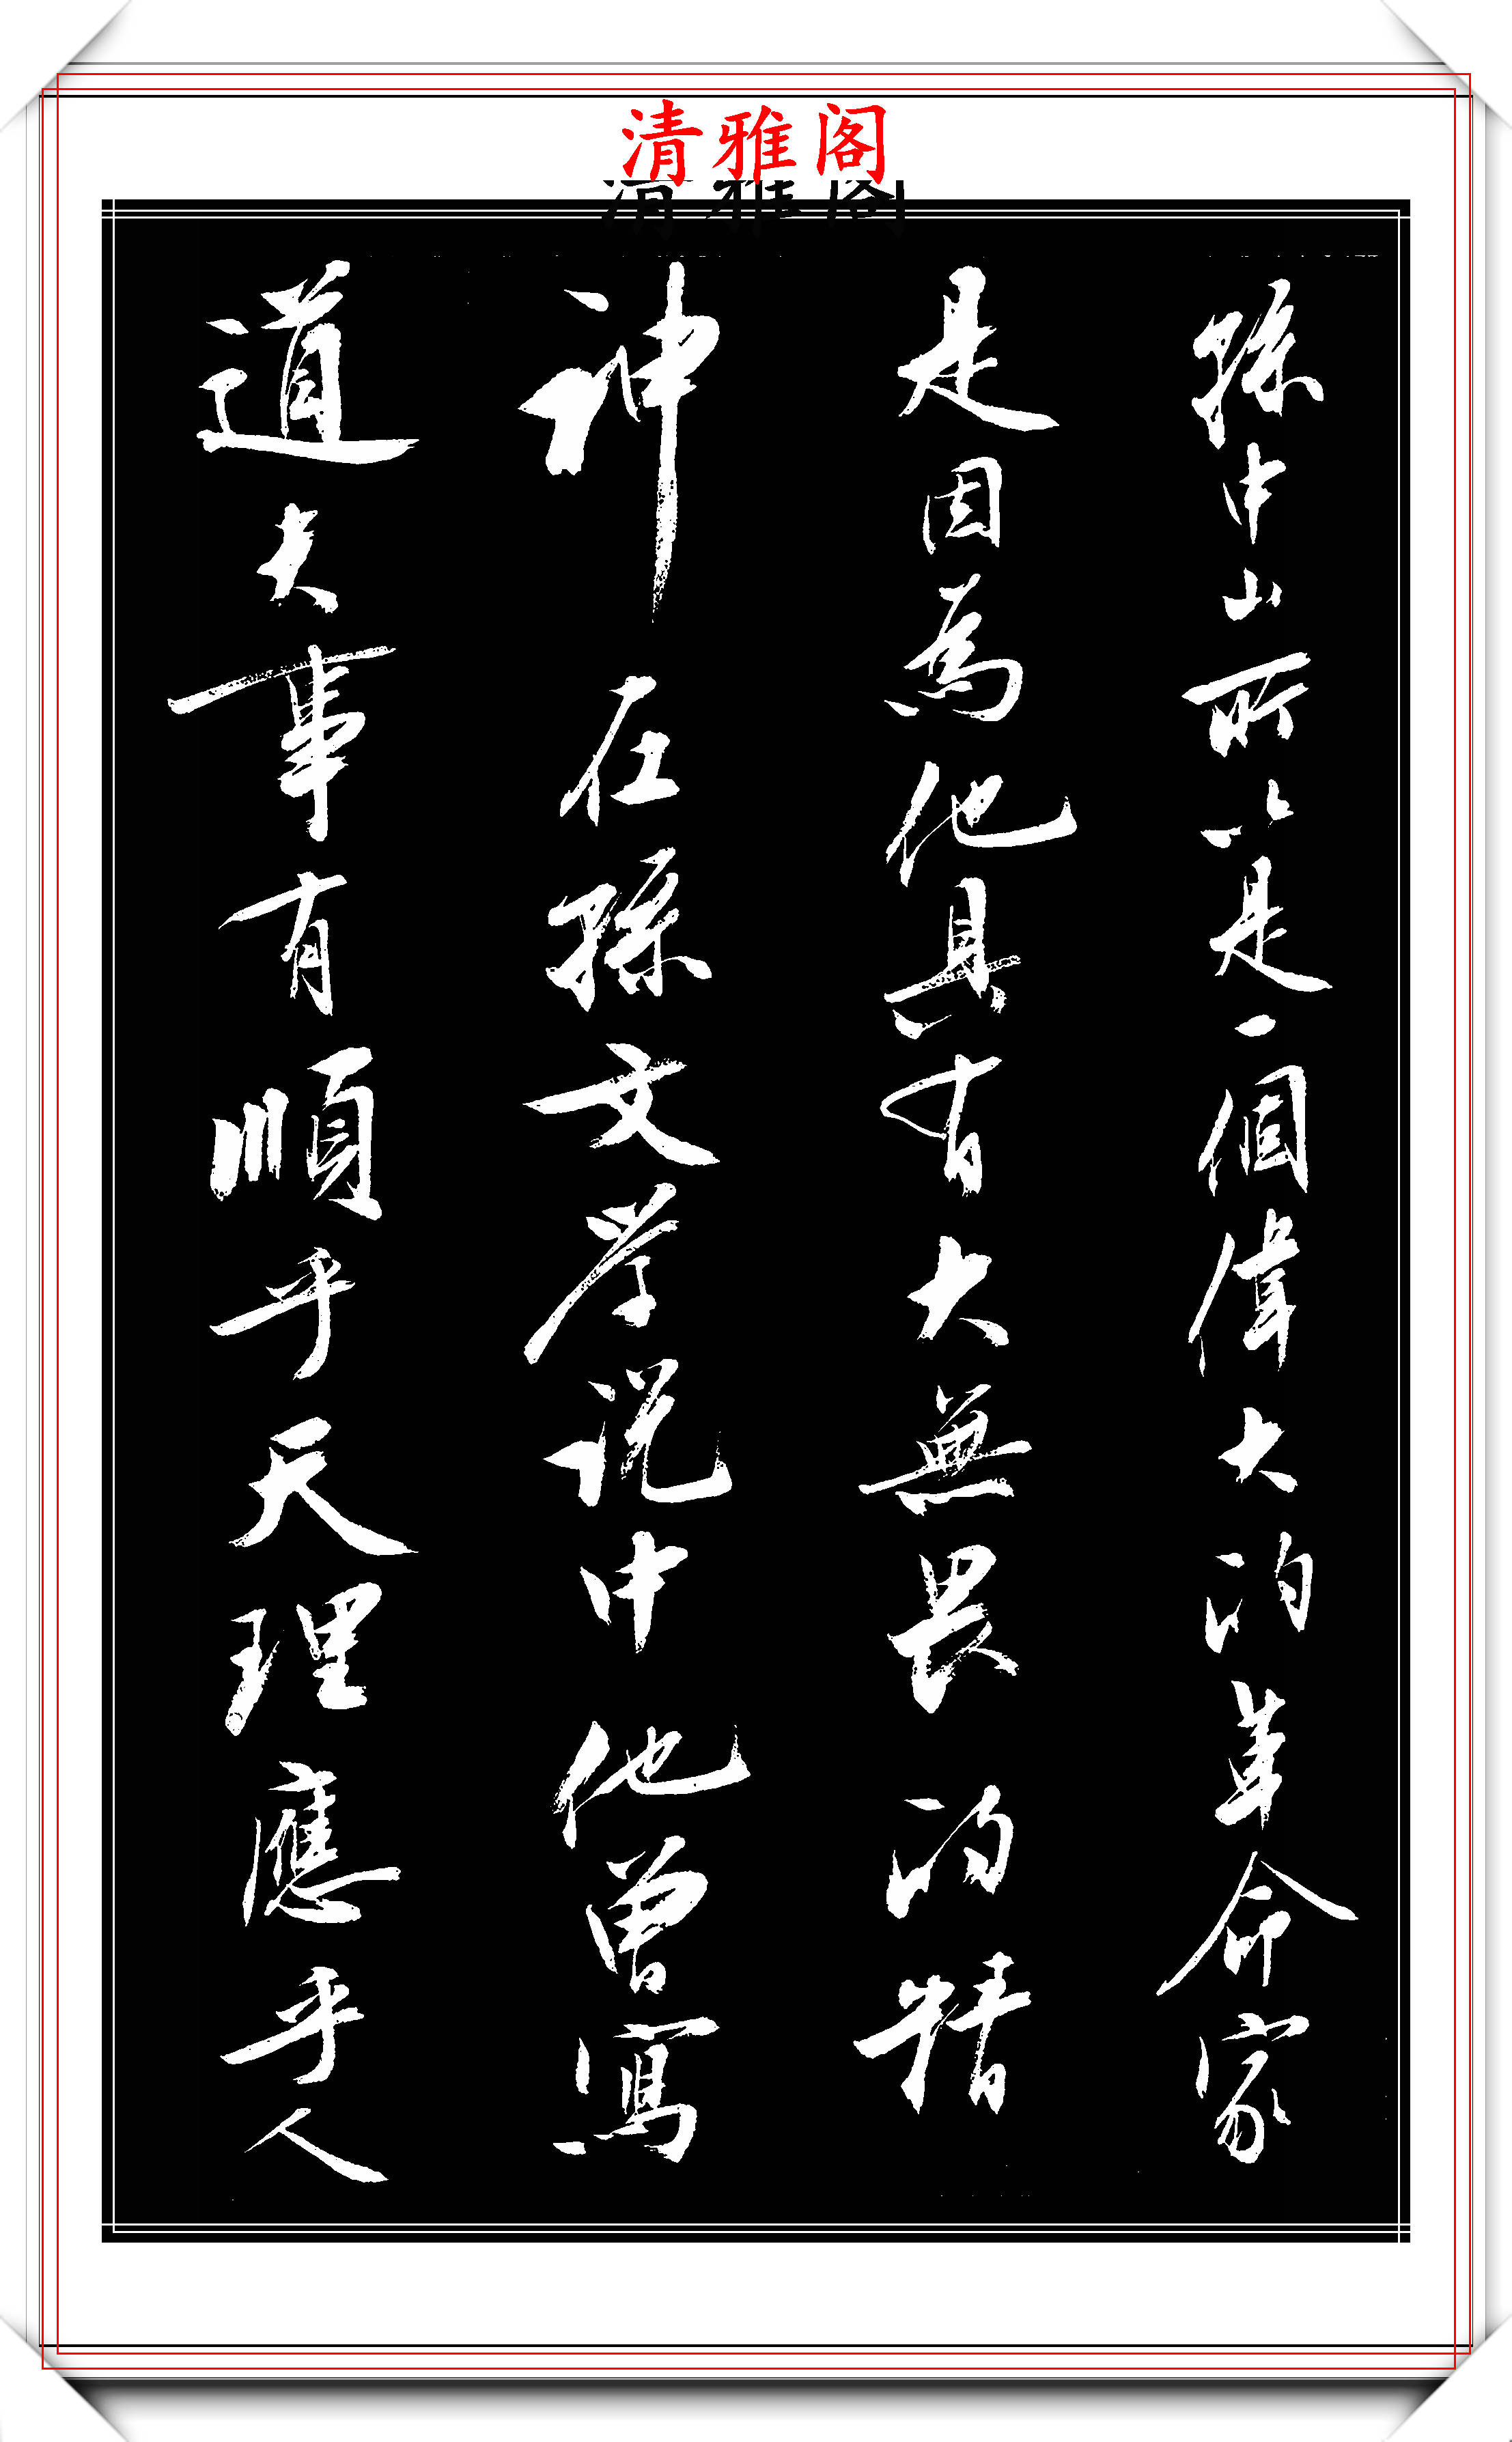 清雅阁
孫中山所以是一個偉大的革命家
是因為他具有大無畏的精
神在孫文學说中他曾寫
道夫事有順乎天理應乎人